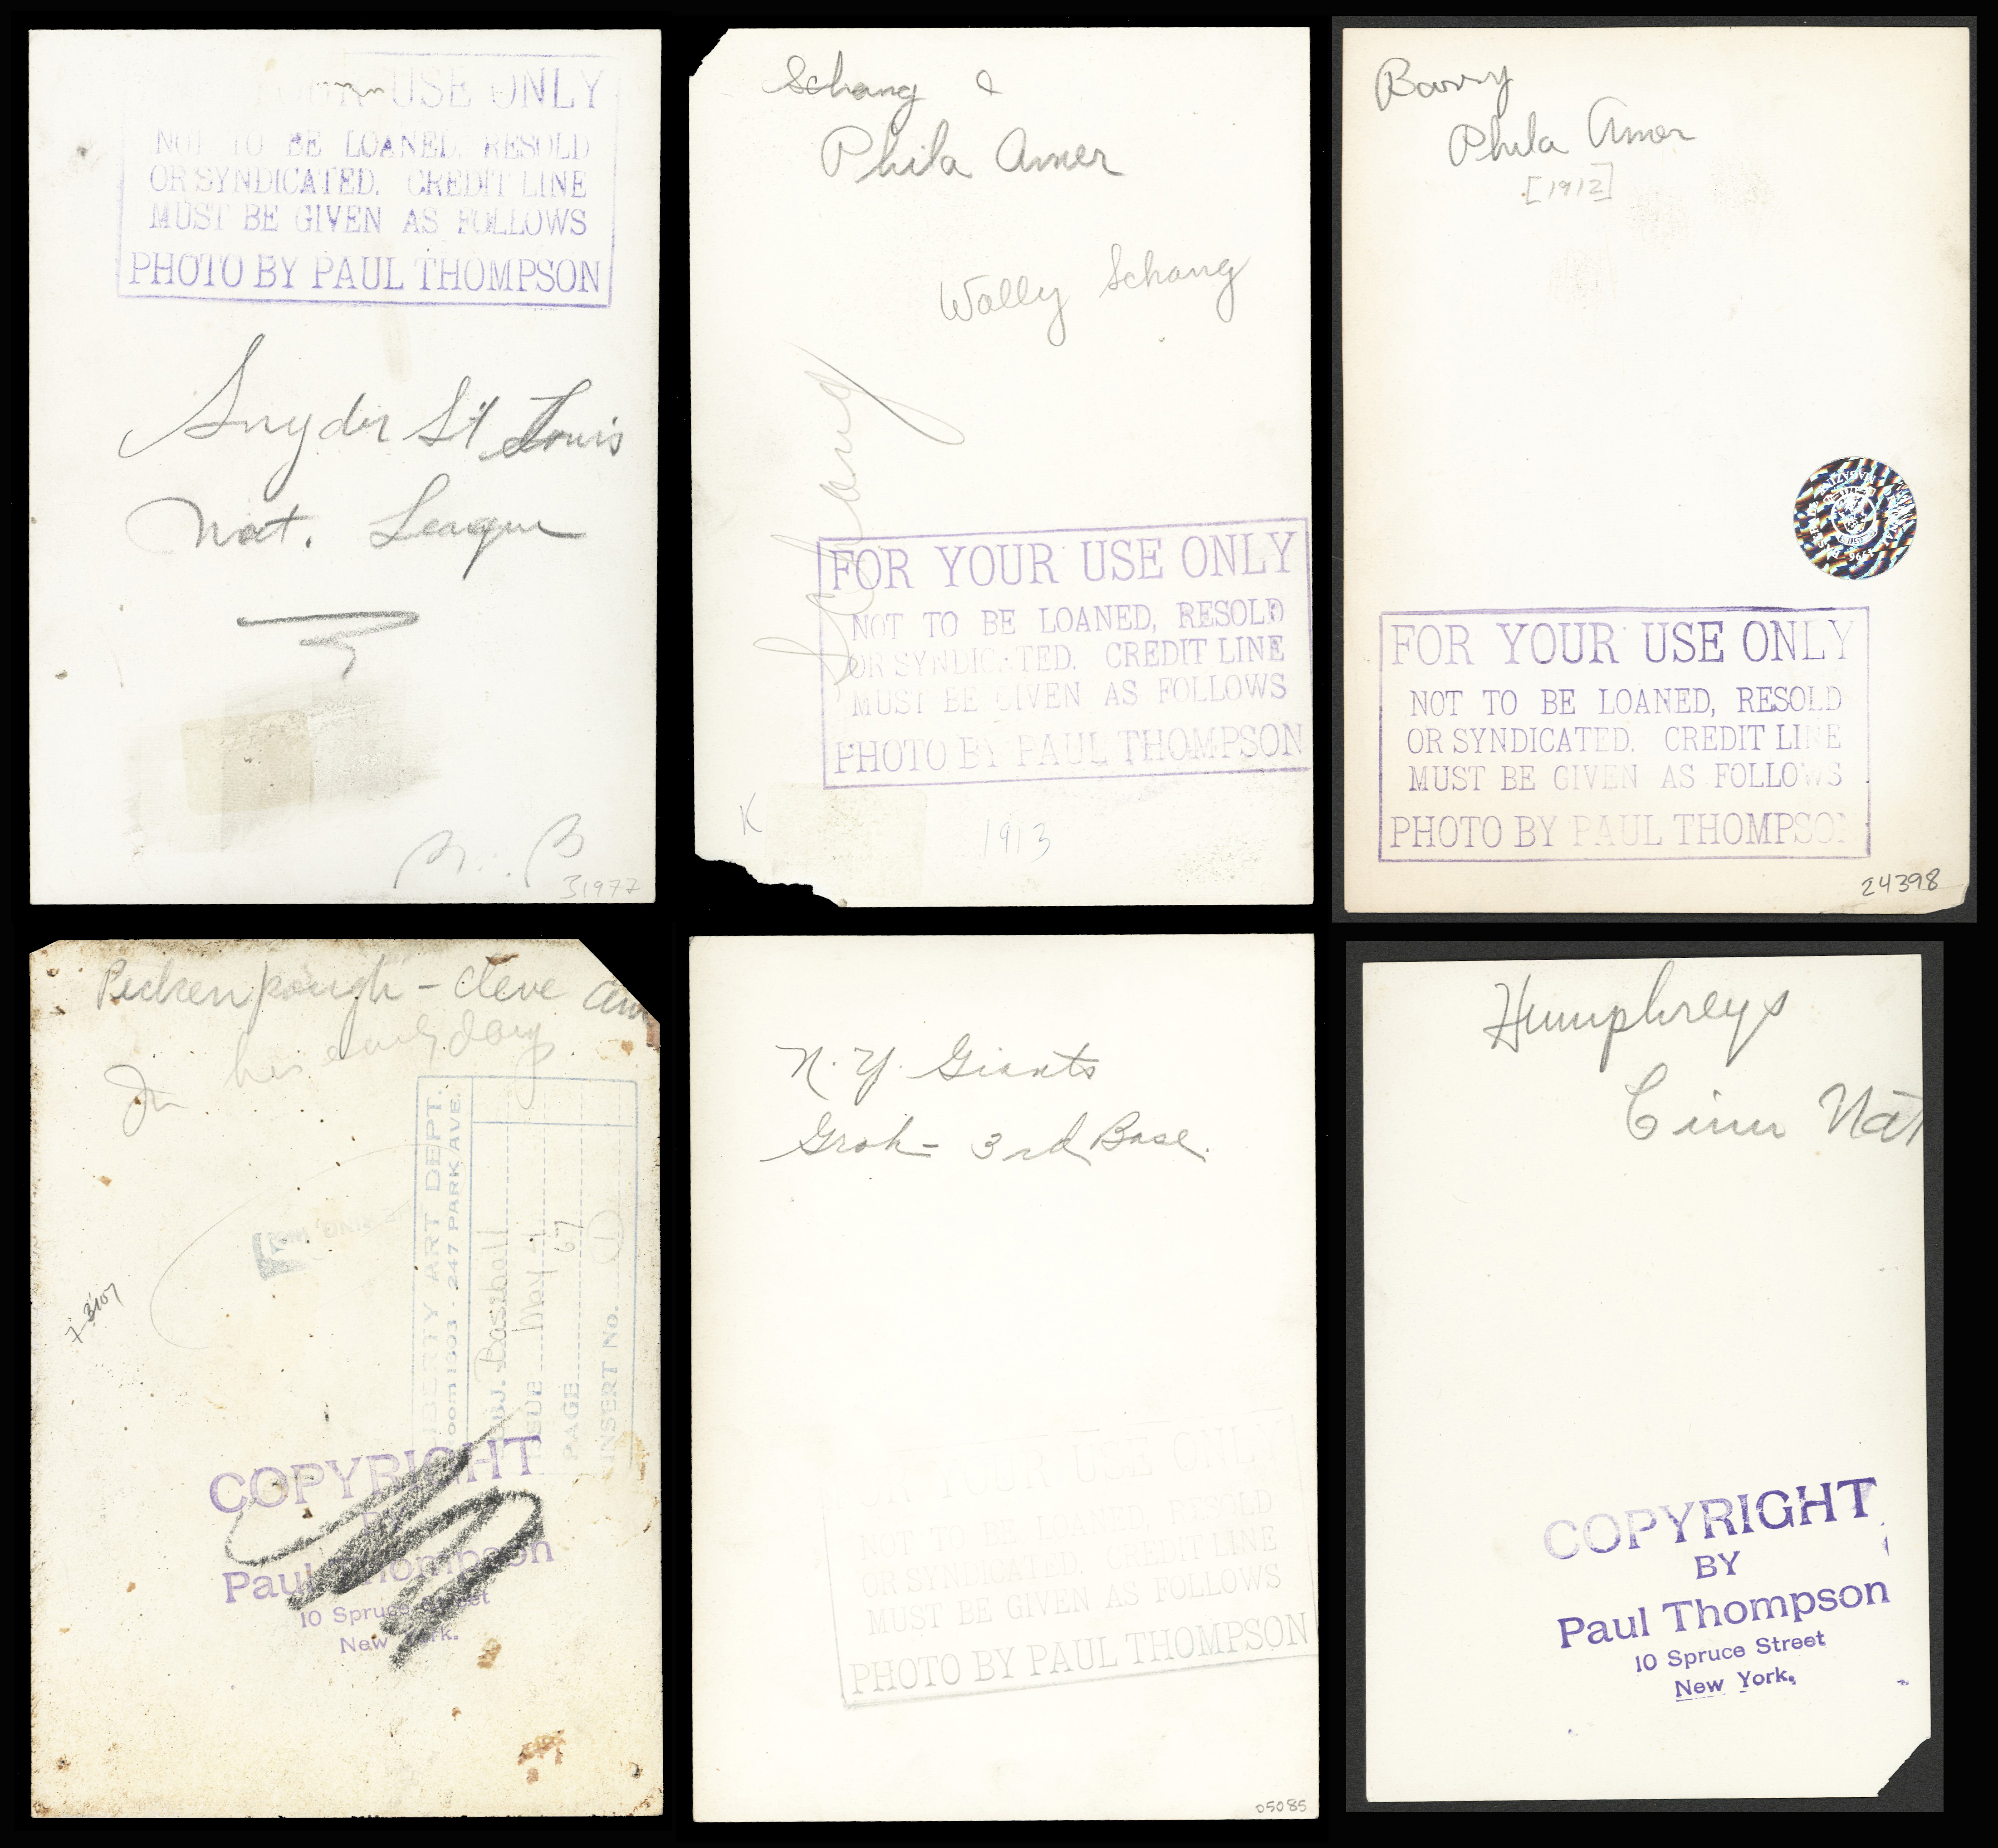 YOUR USE ONLY
NOT TO BE LOANED, RESOLD
OR SYNDICATED. CREDIT LINE
MUST BE GIVEN AS FOLLOWS
PHOTO BY PAUL THOMPSON
Snyder St Louis
Nat. League
31977
Schang &
Phila Amer
Wally Schang
Schang
FOR YOUR USE ONLY
NOT TO BE LOANED, RESOLD
OR SYNDICATED. CREDIT LINE
MUST BE GIVEN AS FOLLOWS
PHOTO BY PAUL THOMPSON
K
1913
Barry
Phila Amer
[1912]
FOR YOUR USE ONLY
NOT TO BE LOANED, RESOLD
OR SYNDICATED. CREDIT LINE
MUST BE GIVEN AS FOLLOWS
PHOTO BY PAUL THOMPSON
24398
Peckenpaugh - Cleve Am
In his early days
LIBERTY ART DEPT.
Room 1303 - 247 PARK AVE.
SUBJ. Baseball
ISSUE May 4
PAGE 67
INSERT No. 1
COPYRIGHT
BY
Paul Thompson
10 Spruce Street
New York.
N. Y. Giants
Groh - 3rd Base.
FOR YOUR USE ONLY
NOT TO BE LOANED, RESOLD
OR SYNDICATED. CREDIT LINE
MUST BE GIVEN AS FOLLOWS
PHOTO BY PAUL THOMPSON
05085
Humphreys
Cinn Nat
COPYRIGHT
BY
Paul Thompson
10 Spruce Street
New York.